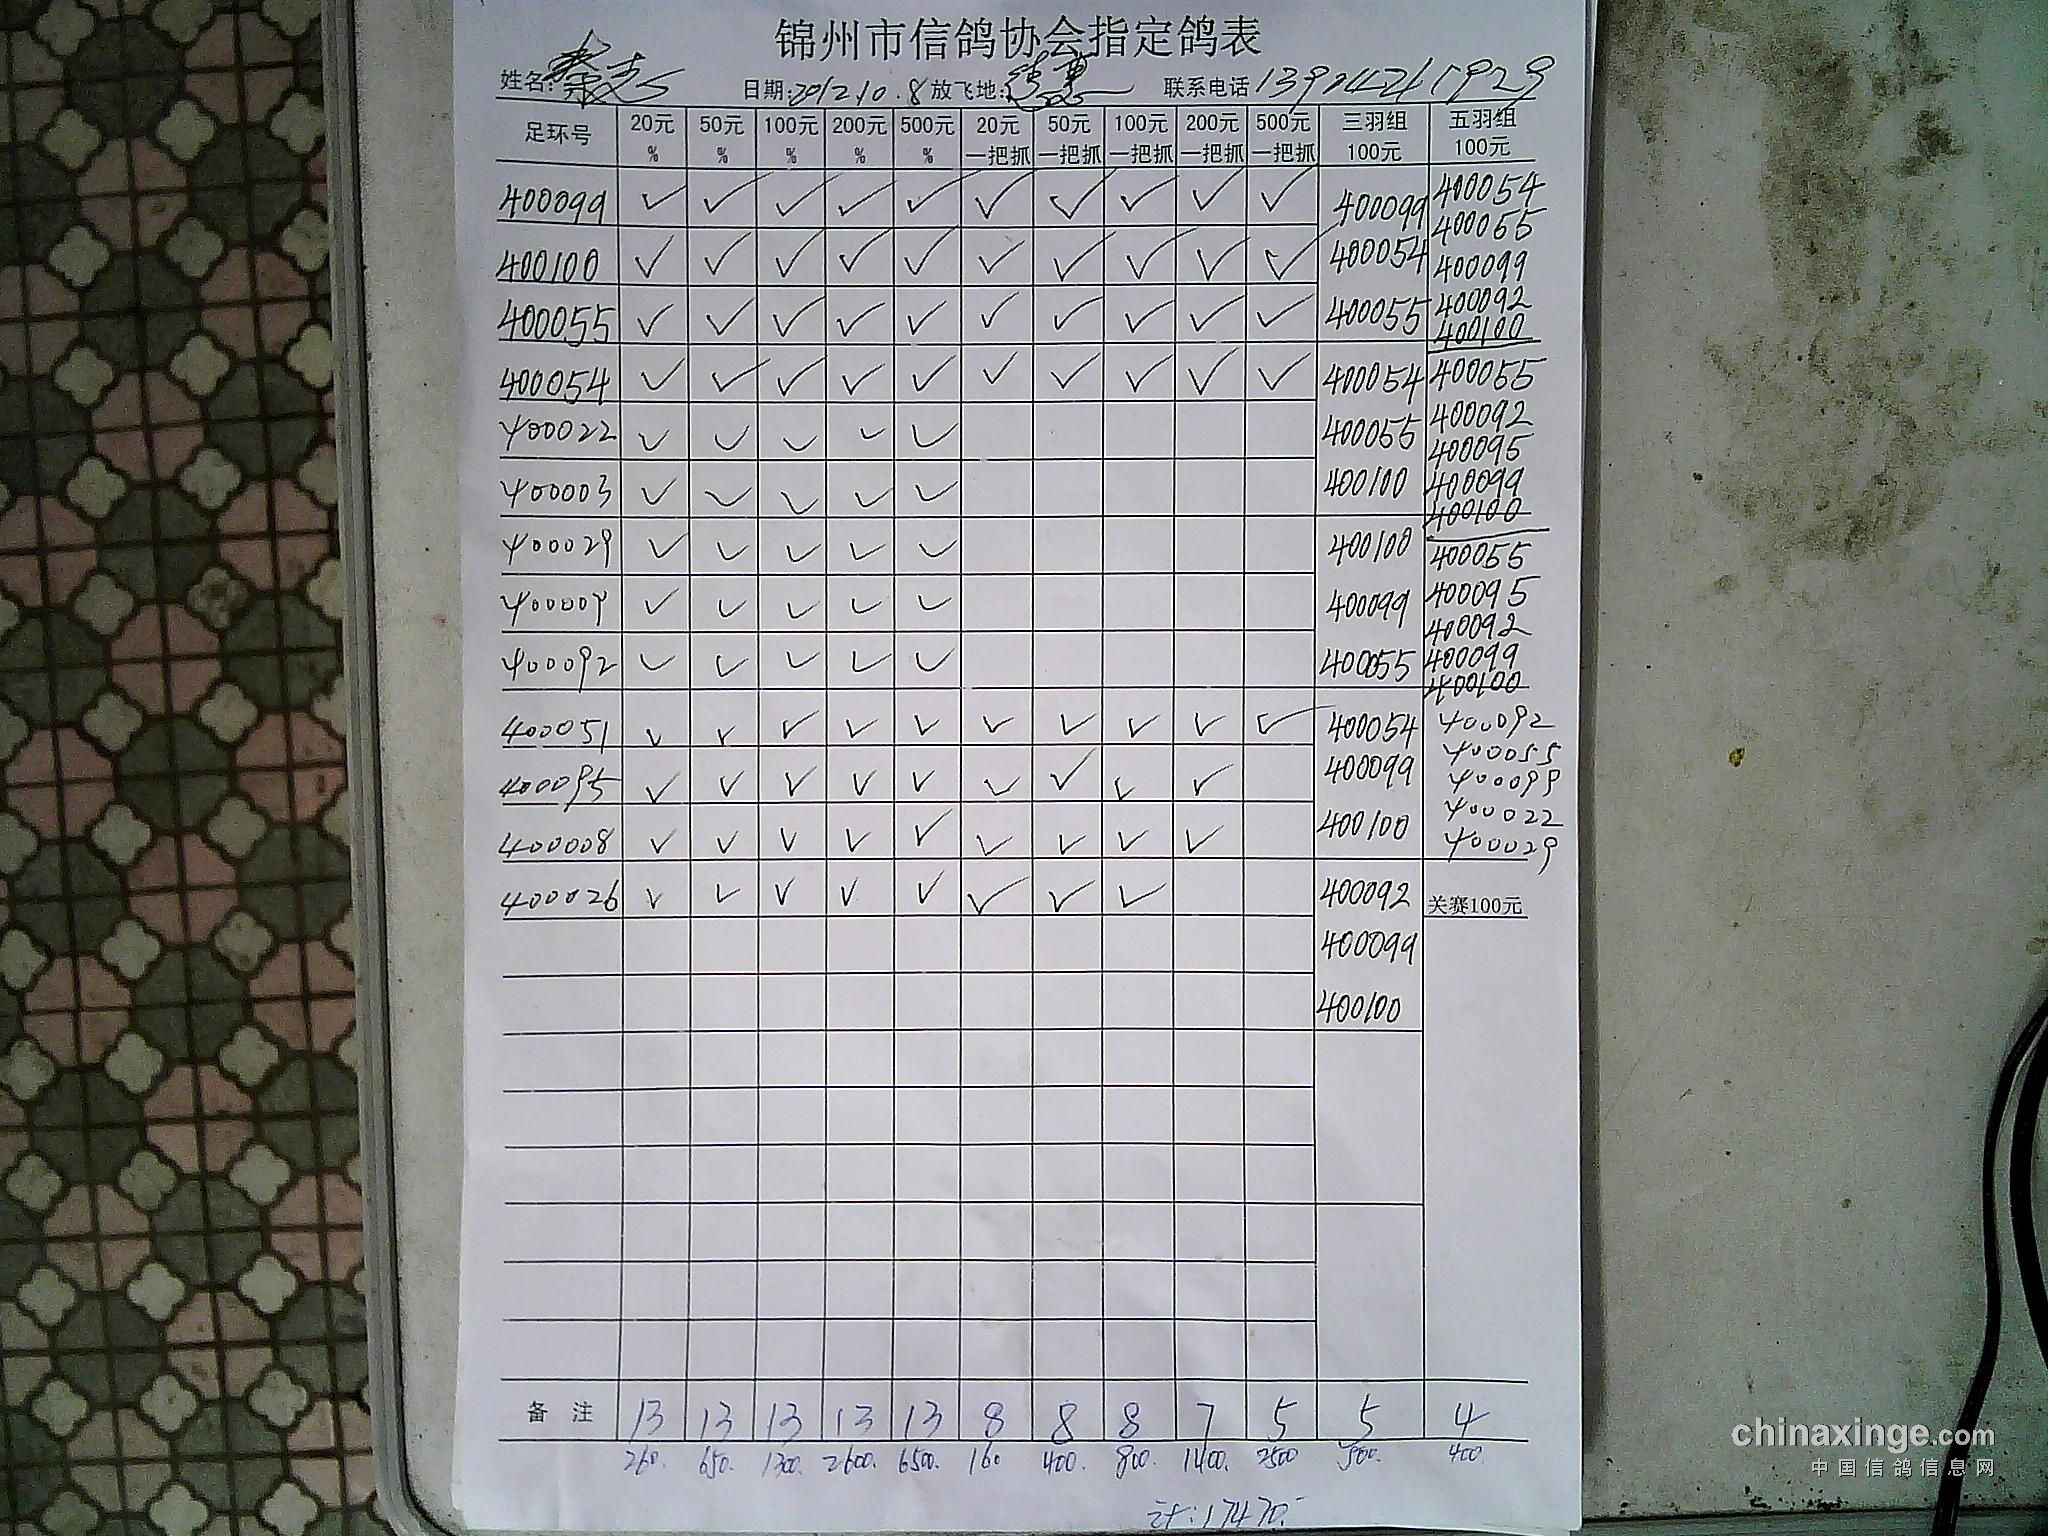 锦州市信鸽协会指定鸽表
姓名: 日期:2012.10.8 放飞地: 联系电话
足环号 20元% 50元% 100元% 200元% 500元% 20元一把抓 50元一把抓 100元一把抓 200元一把抓 500元一把抓 三羽组100元 五羽组100元
400099 ✓ ✓ ✓ ✓ ✓ ✓ ✓ ✓ ✓ ✓ 400099 400054
400055
400100 ✓ ✓ ✓ ✓ ✓ ✓ ✓ ✓ ✓ ✓ 400054 400099
400055 ✓ ✓ ✓ ✓ ✓ ✓ ✓ ✓ ✓ ✓ 400055 400092
400100
400054 ✓ ✓ ✓ ✓ ✓ ✓ ✓ ✓ ✓ ✓ 400054 400055
400022 ✓ ✓ ✓ ✓ ✓ 400055 400092
400095
400003 ✓ ✓ ✓ ✓ ✓ 400100 400099
400100
400029 ✓ ✓ ✓ ✓ ✓ 400100 400055
400009 ✓ ✓ ✓ ✓ ✓ 400099 400095
400092
400092 ✓ ✓ ✓ ✓ ✓ 400055 400099
400100
400051 ✓ ✓ ✓ ✓ ✓ ✓ ✓ ✓ ✓ ✓ 400054 400092
400055
400095 ✓ ✓ ✓ ✓ ✓ ✓ ✓ ✓ ✓ 400099 400099
400022
400008 ✓ ✓ ✓ ✓ ✓ ✓ ✓ ✓ ✓ 400100 400029
400026 ✓ ✓ ✓ ✓ ✓ ✓ ✓ ✓ 400092 关赛100元
400099
400100
备注 13 13 13 13 13 8 8 8 7 5 5 4
260. 650. 1300. 2600. 6500. 160 400. 800. 1400. 2500 500. 400.
计:17470.
chinaxinge.com
中国信鸽信息网